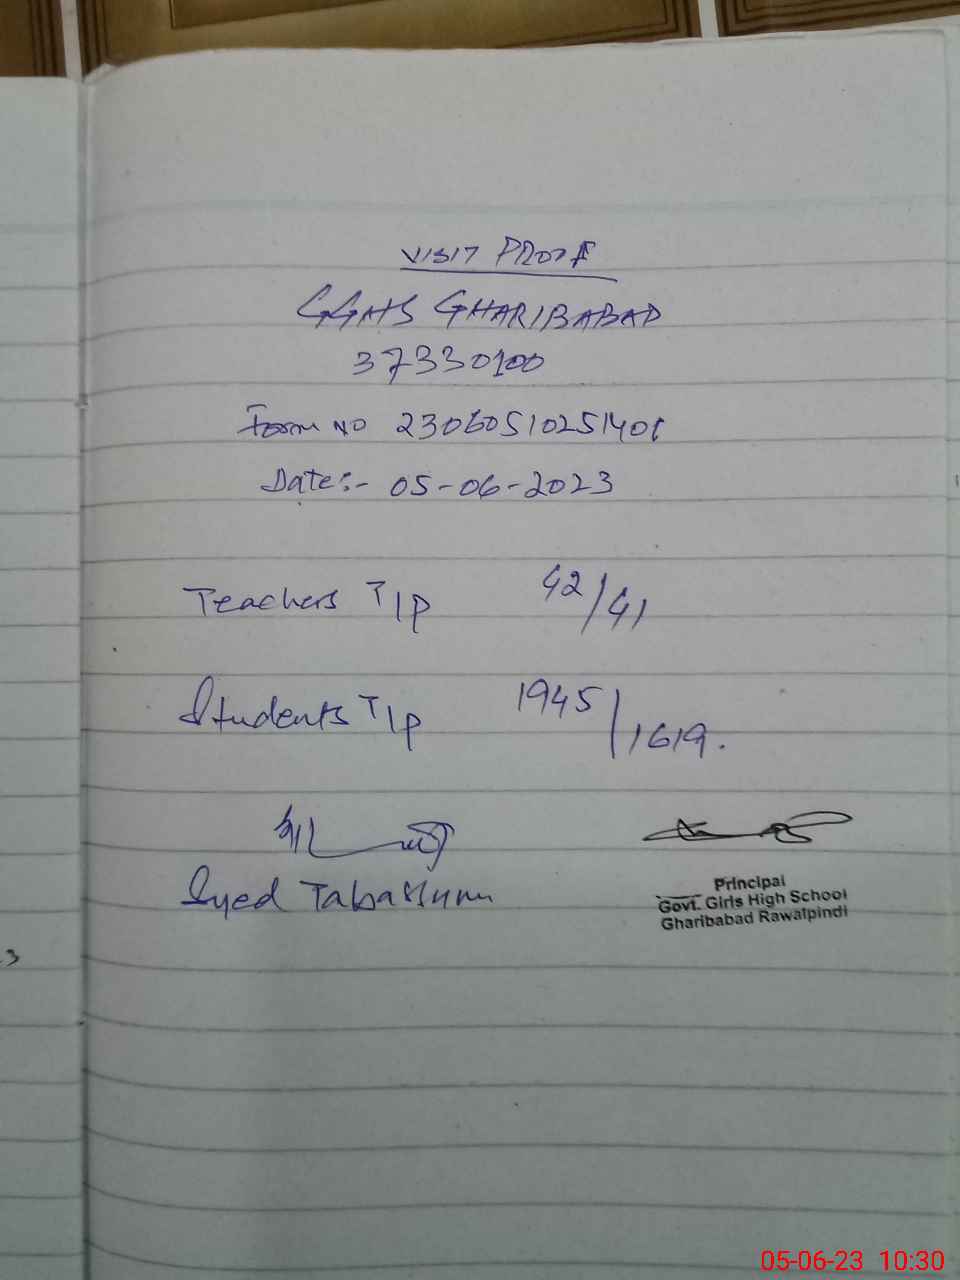 VISIT PROOF
GGHS GHARIBABAD
37330100
Form NO 23060510251401
Date:- 05-06-2023
Teachers T/P 42/41
Students T/P 1945/1619.
Syed Tabassum
Principal
Govt. Girls High School
Gharibabad Rawalpindi
3
05-06-23 10:30